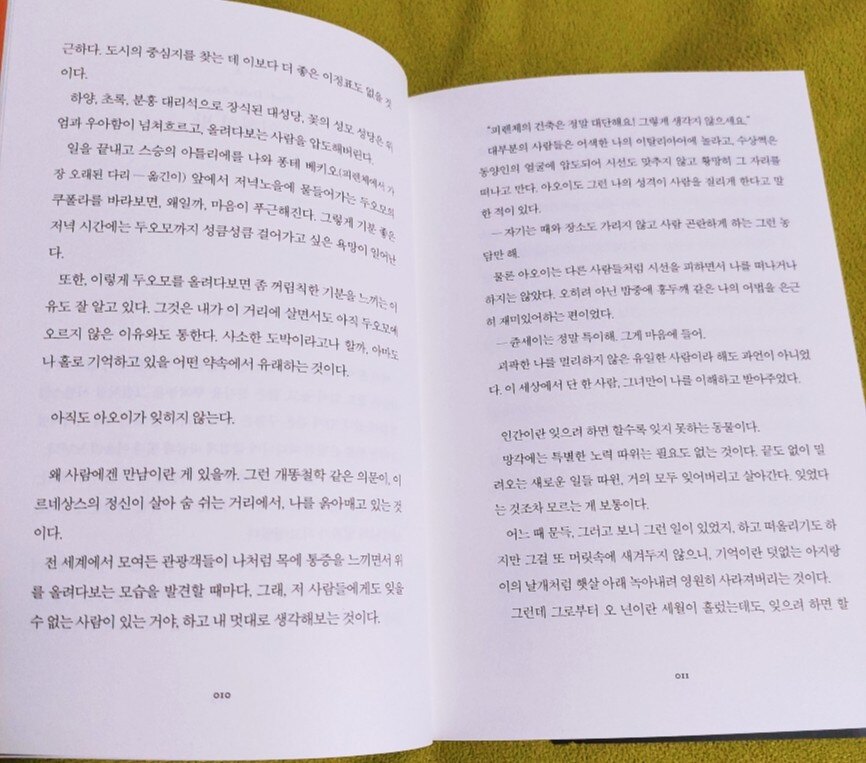 근하다. 도시의 중심지를 찾는 데 이보다 더 좋은 이정표도 없을 것
이다.
하양, 초록, 분홍 대리석으로 장식된 대성당, 꽃의 성모 성당은 위
엄과 우아함이 넘쳐흐르고, 올려다보는 사람을 압도해버린다.
일을 끝내고 스승의 아틀리에를 나와 퐁테 베키오(피렌체에서 가
장 오래된 다리—옮긴이) 앞에서 저녁노을에 물들어가는 두오모의
쿠폴라를 바라보면, 왜일까, 마음이 푸근해진다. 그렇게 기분 좋은
저녁 시간에는 두오모까지 성큼성큼 걸어가고 싶은 욕망이 일어난
다.
또한, 이렇게 두오모를 올려다보면 좀 꺼림칙한 기분을 느끼는 이
유도 잘 알고 있다. 그것은 내가 이 거리에 살면서도 아직 두오모에
오르지 않은 이유와도 통한다. 사소한 도박이라고나 할까, 아마도
나 홀로 기억하고 있을 어떤 약속에서 유래하는 것이다.
아직도 아오이가 잊히지 않는다.
왜 사람에겐 만남이란 게 있을까. 그런 개똥철학 같은 의문이, 이
르네상스의 정신이 살아 숨 쉬는 거리에서, 나를 옭아매고 있는 것
이다.
전 세계에서 모여든 관광객들이 나처럼 목에 통증을 느끼면서 위
를 올려다보는 모습을 발견할 때마다, 그래, 저 사람들에게도 잊을
수 없는 사람이 있는 거야, 하고 내 멋대로 생각해보는 것이다.
010
“피렌체의 건축은 정말 대단해요! 그렇게 생각지 않으세요.”
대부분의 사람들은 어색한 나의 이탈리아어에 놀라고, 수상쩍은
동양인의 얼굴에 압도되어 시선도 맞추지 않고 황망히 그 자리를
떠나고 만다. 아오이도 그런 나의 성격이 사람을 질리게 한다고 말
한 적이 있다.
—자기는 때와 장소도 가리지 않고 사람 곤란하게 하는 그런 농
담만 해.
물론 아오이는 다른 사람들처럼 시선을 피하면서 나를 떠나거나
하지는 않았다. 오히려 아닌 밤중에 홍두깨 같은 나의 어법을 은근
히 재미있어하는 편이었다.
—쥰세이는 정말 특이해. 그게 마음에 들어.
괴팍한 나를 멀리하지 않은 유일한 사람이라 해도 과언이 아니었
다. 이 세상에서 단 한 사람, 그녀만이 나를 이해하고 받아주었다.
인간이란 잊으려 하면 할수록 잊지 못하는 동물이다.
망각에는 특별한 노력 따위는 필요도 없는 것이다. 끝도 없이 밀
려오는 새로운 일들 따윈, 거의 모두 잊어버리고 살아간다. 잊었다
는 것조차 모르는 게 보통이다.
어느 때 문득, 그러고 보니 그런 일이 있었지, 하고 떠올리기도 하
지만 그걸 또 머릿속에 새겨두지 않으니, 기억이란 덧없는 아지랑
이의 날개처럼 햇살 아래 녹아내려 영원히 사라져버리는 것이다.
그런데 그로부터 오 년이란 세월이 흘렀는데도, 잊으려 하면 할
011